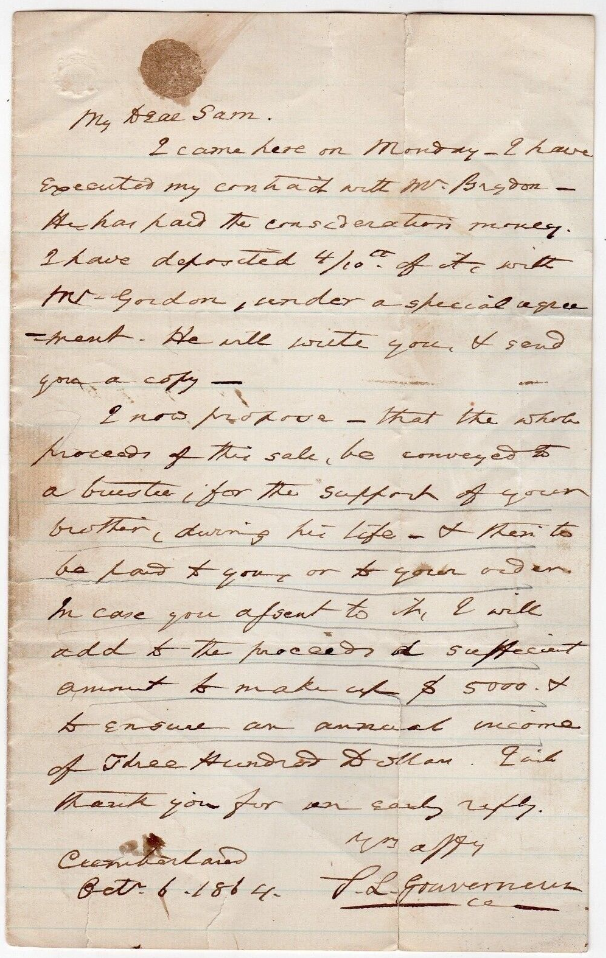 My Dear Sam.
I came here on Monday - I have
executed my contract with Mr. Brydon -
He has paid the consideration money.
I have deposited 4/10ths of it, with
Mr - Gordon, under a special agree
-ment. He will write you, & send
you a copy -
I now propose - that the whole
proceeds of this sale, be conveyed to
a trustee, for the support of your
brother, during his life - & then to
be paid to you, or to your order
In case you assent to it, I will
add to the proceeds a sufficient
amount to make up $ 5000. &
to ensure an annual income
of Three Hundred Dollars. I will
thank you for an early reply.
Yrs affy
Cumberland
Octr. 6. 1864. S. L. Gouverneur